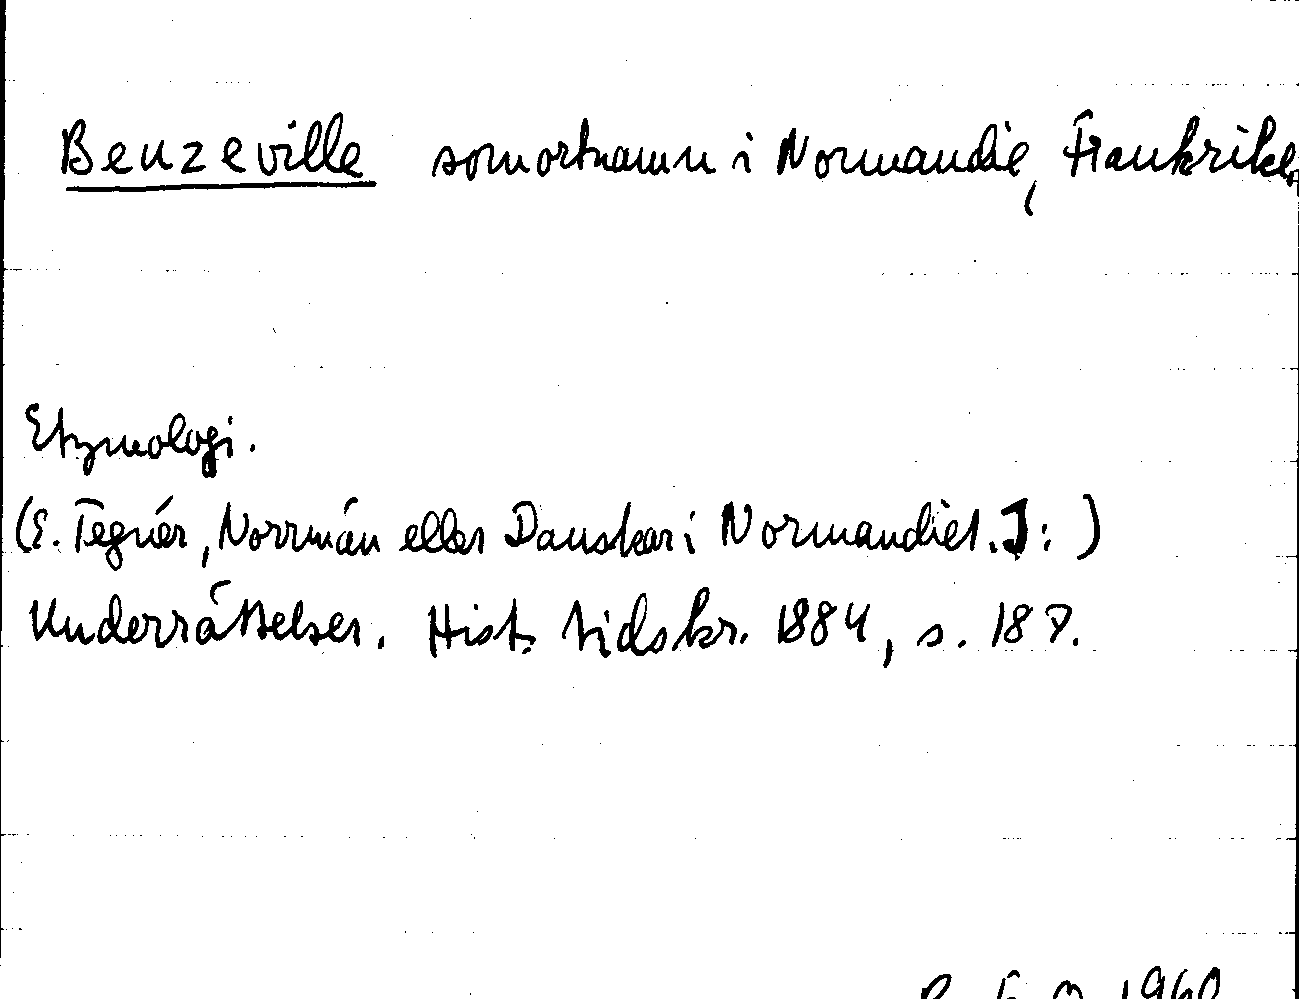 Benzeville som ortnamn i Normandie, Frankrike.
Etymologi.
(E. Tegnér, Norrmän eller Danskar i Normandiet. I: )
Underrättelser. Hist. tidskr. 1884, s. 187.
1960